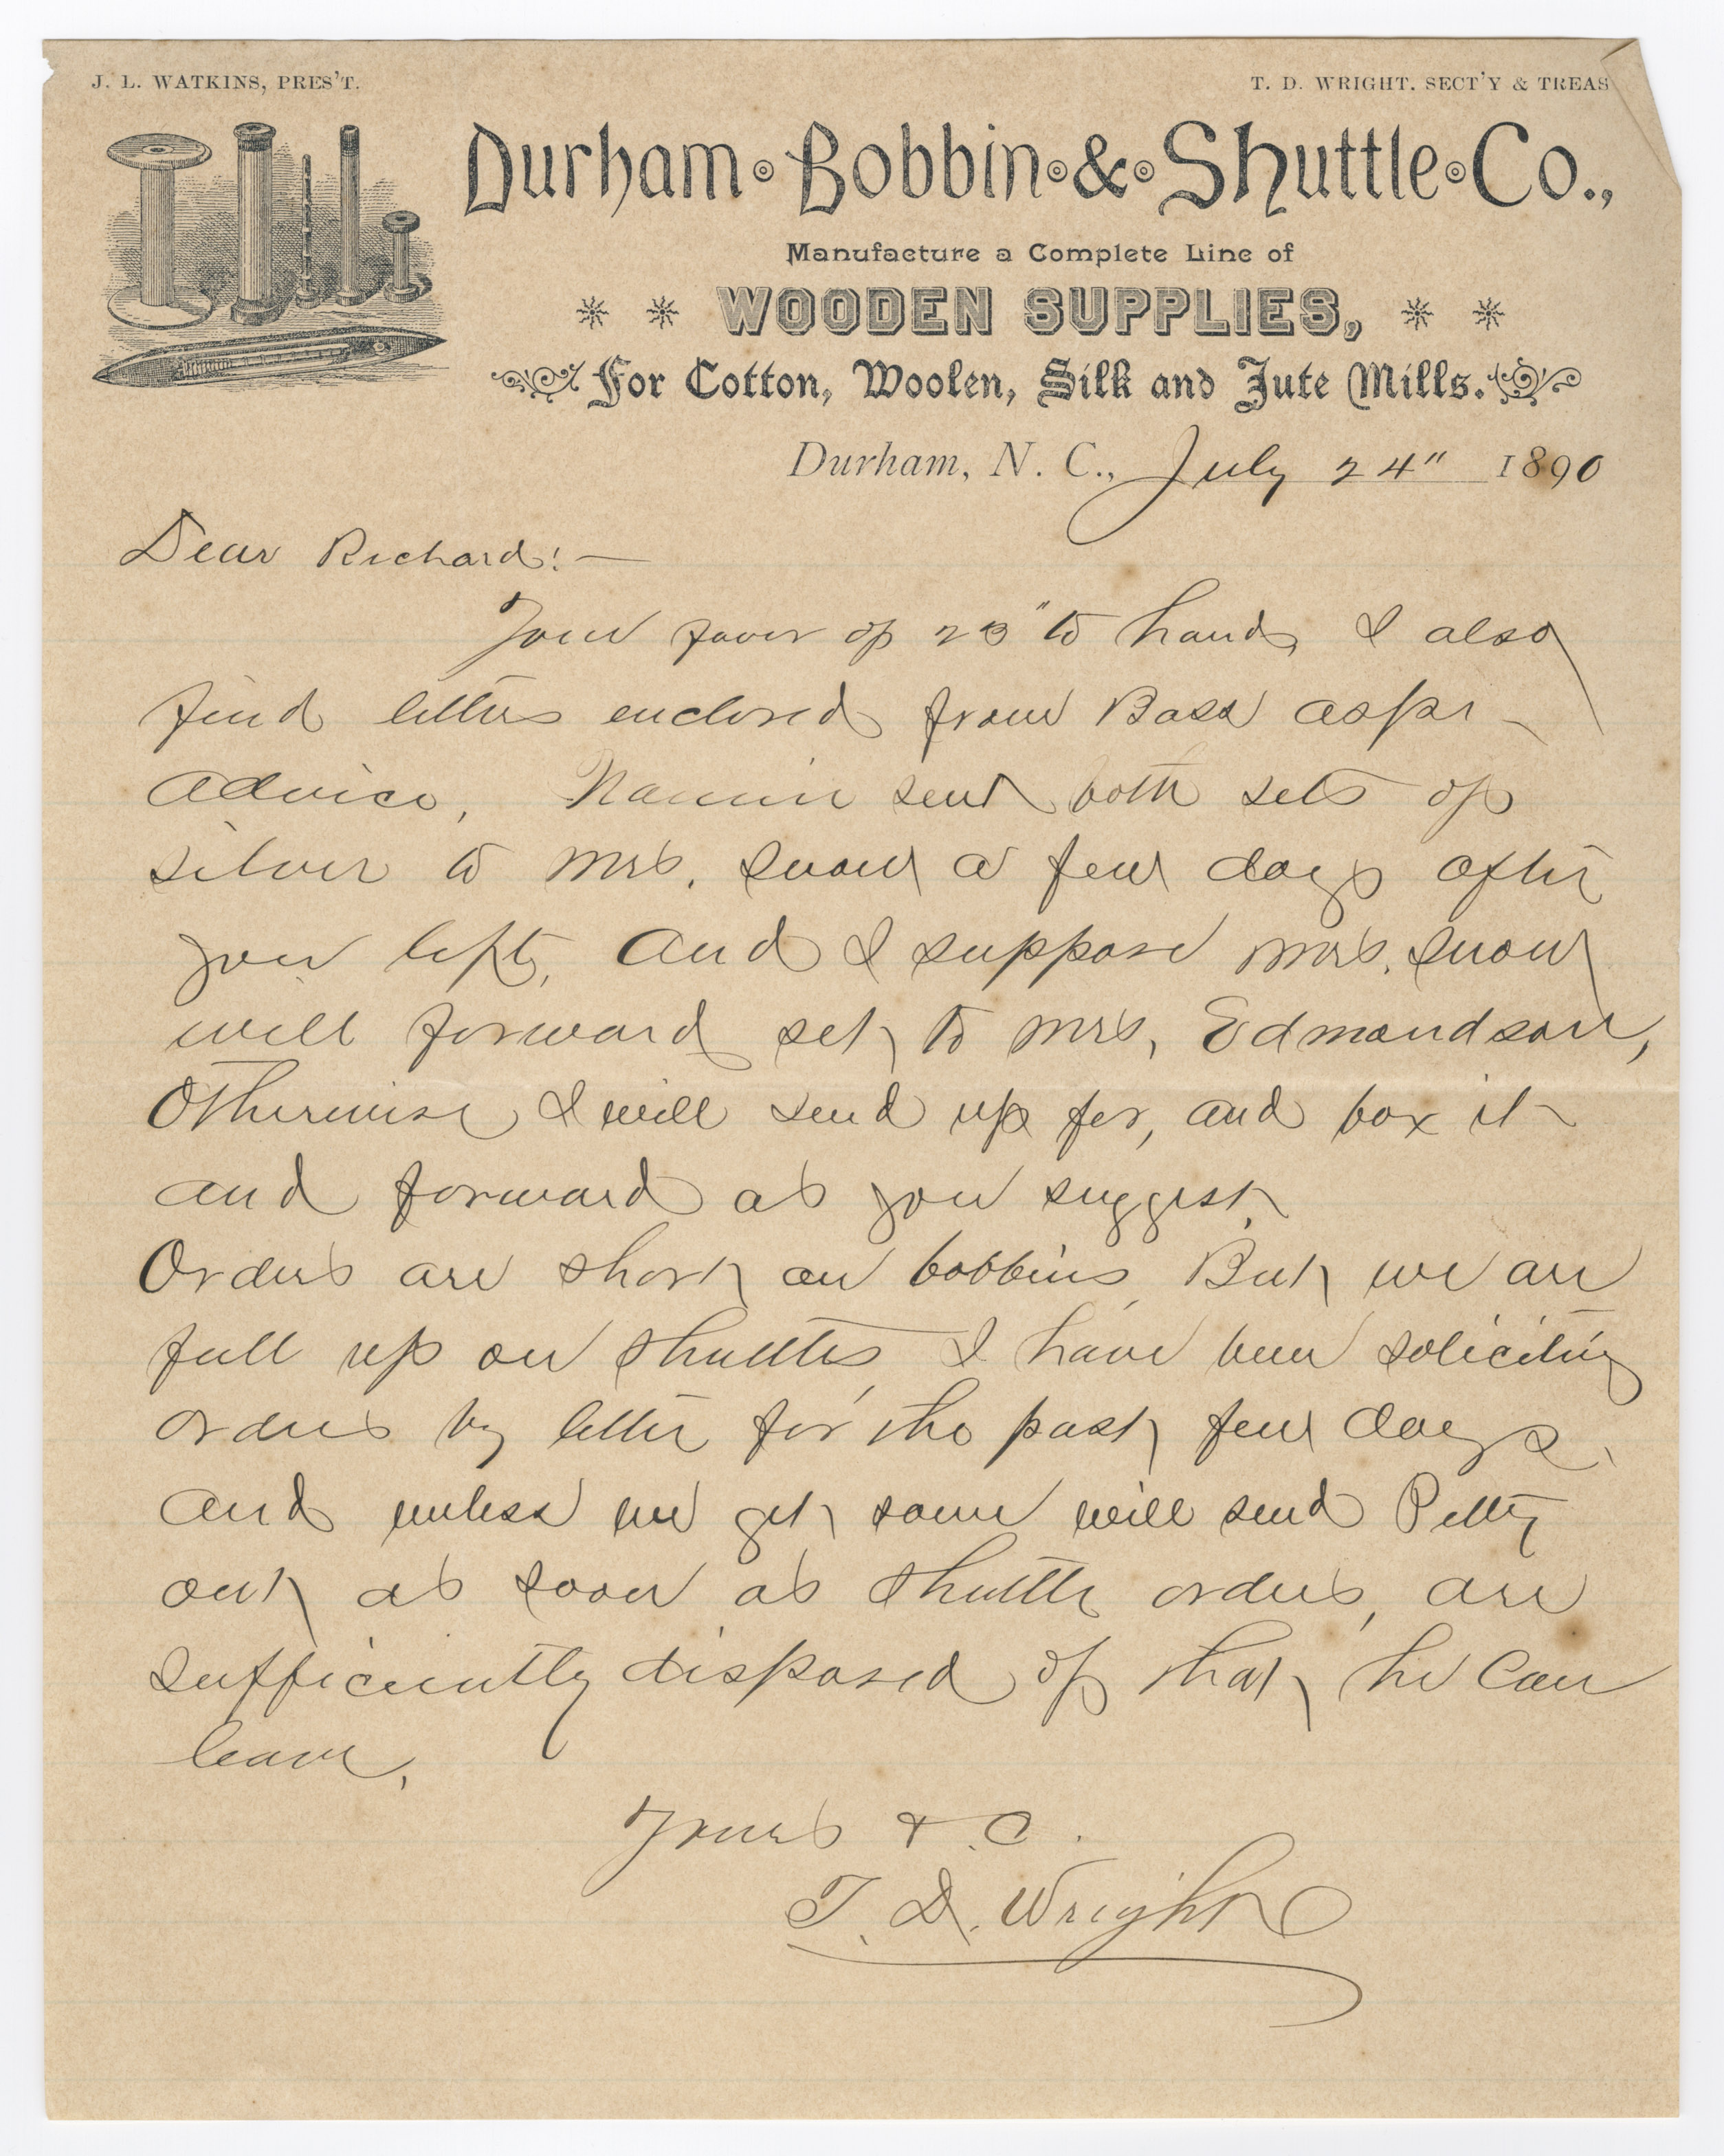 J. L. WATKINS, PRES'T.
T. D. WRIGHT, SECT'Y & TREAS
Durham Bobbin & Shuttle Co.,
Manufacture a Complete Line of
WOODEN SUPPLIES,
For Cotton, Woolen, Silk and Jute Mills.
Durham, N. C., July 24" 1890
Dear Richard:—
Your favor of 23" to hand, I also
find letters enclosed from Bass as pr
advice, Nannie sent both sets of
silver to Mrs. Snow a few days after
you left, and I suppose Mrs. Snow
will forward set to Mrs. Edmondson,
Otherwise I will send up for, and box it
and forward as you suggest.
Orders are short on bobbins, But we are
full up on shuttles, I have been soliciting
orders by letter for the past few days,
and unless we get some will send Petty
out as soon as shuttle orders, are
sufficiently disposed of that he can
leave.
Yours &.C.
T. D. Wright